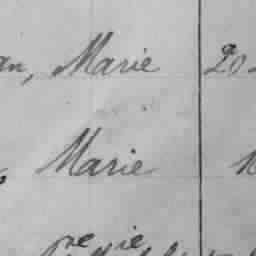 an, Marie 20
Marie 1